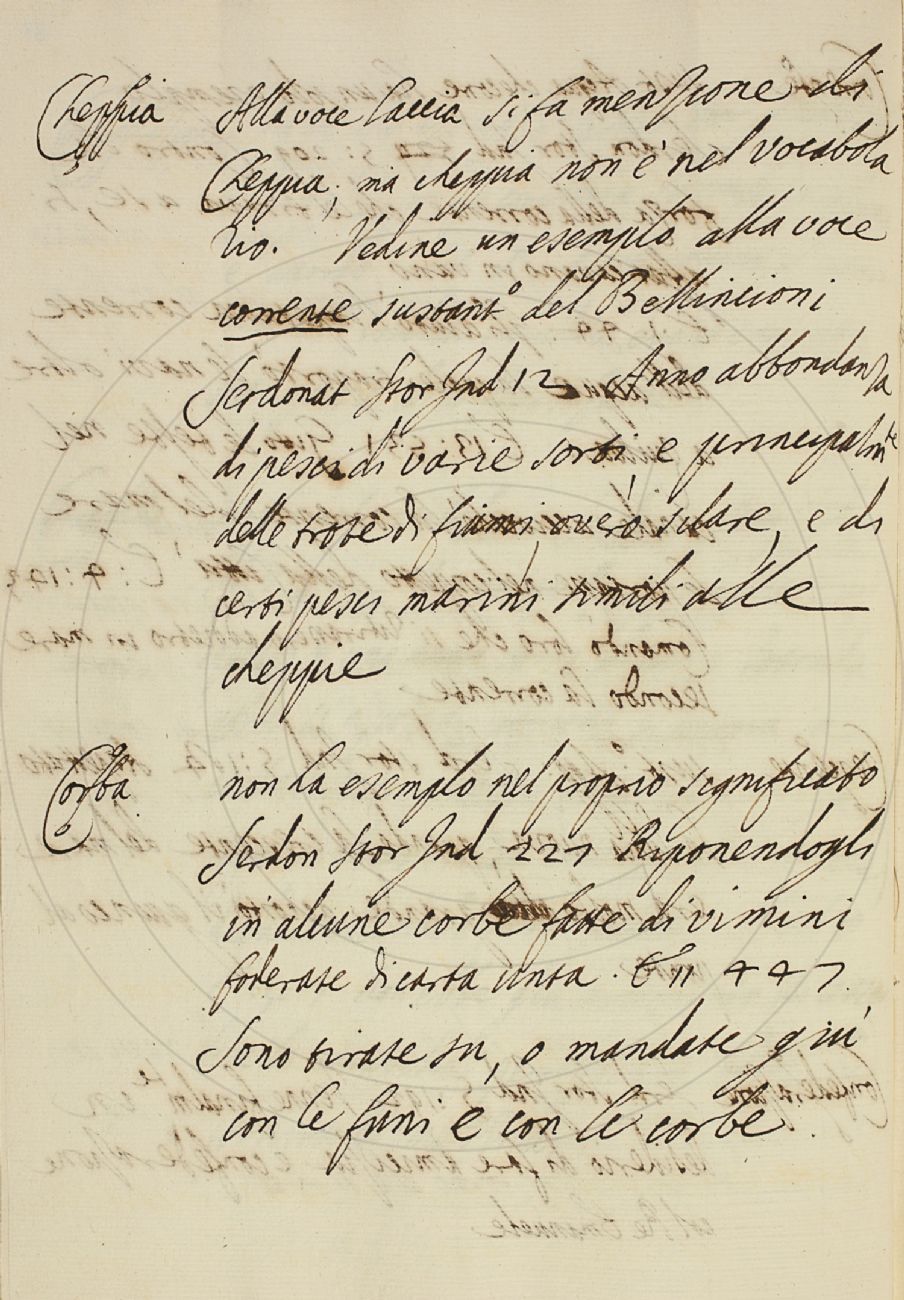 Cheppia Alla voce laccia si fa menzione di
Cheppia, ma cheppia non è nel vocabola
rio. Vedine un esempio alla voce
corrente sustant.o del Bellincioni
Serdonat Stor Ind 12 Anno abbondanza
di pesci di varie sorti, e principalm.te
delle trote di fiumi, overo silare, e di
certi pesci marini simili alle
cheppie
Corba non ha esempio nel proprio significato
Serdon Stor Ind 227 Riponendogli
in alcune corbe fatte di vimini
foderate di carta unta. 447
Sono tirate su, o mandate giù
con le funi e con le corbe.